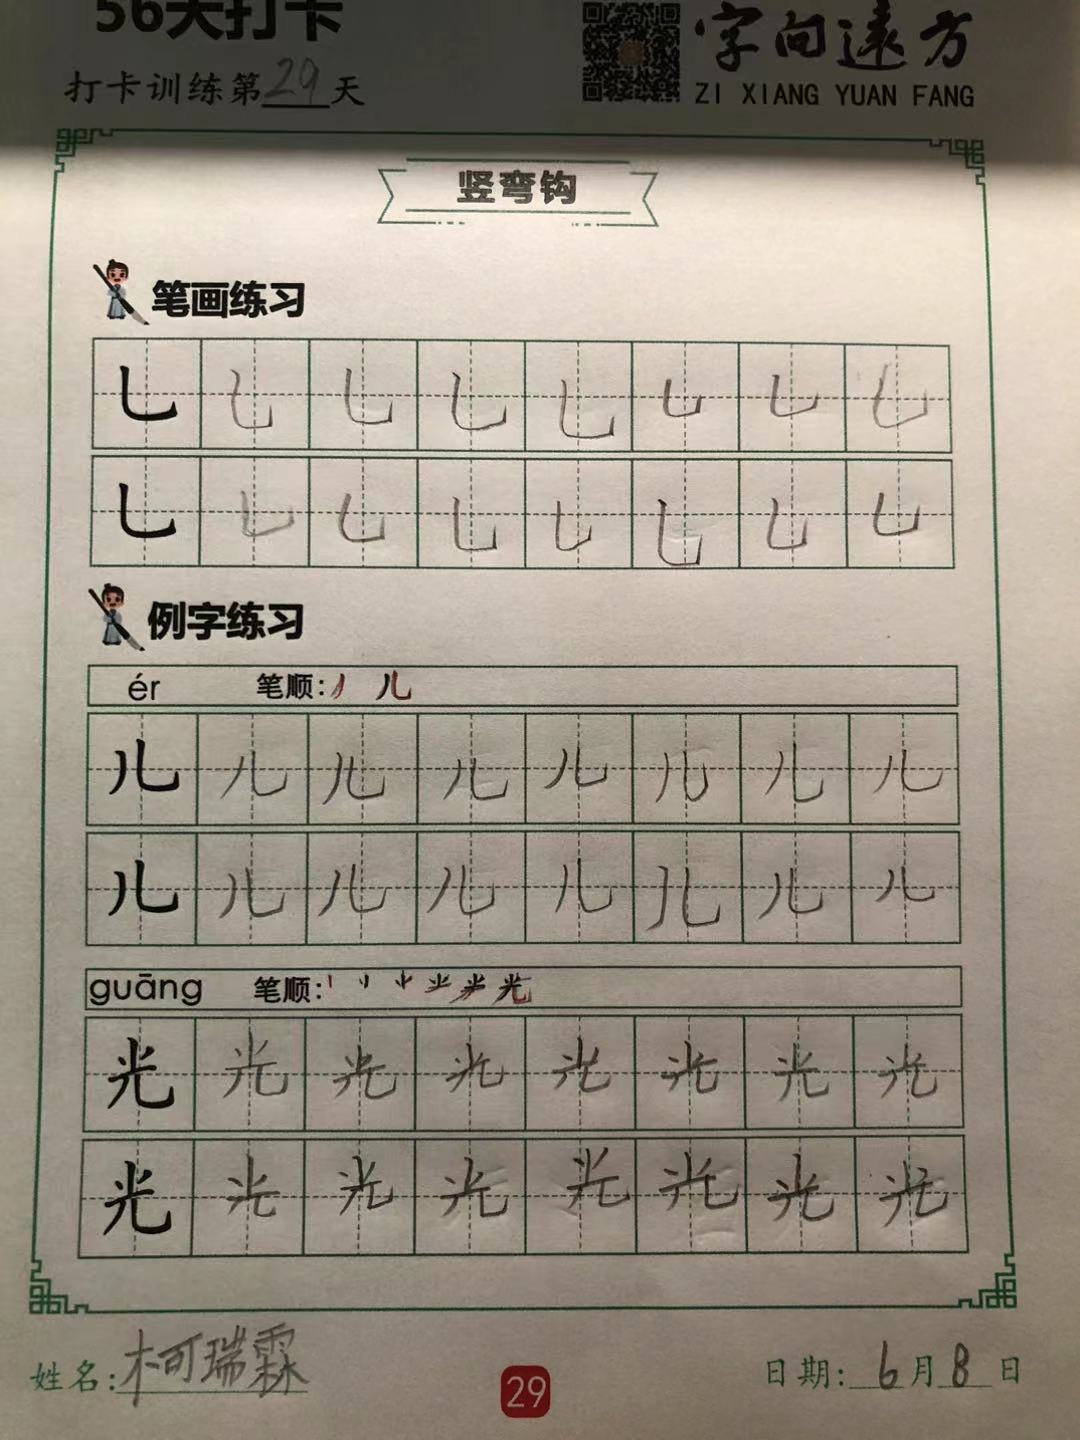 56天打卡
字向遠方
打卡训练第29天
ZI XIANG YUAN FANG
竖弯钩
笔画练习
乚 乚 乚 乚 乚 乚 乚 乚
乚 乚 乚 乚 乚 乚 乚 乚
例字练习
ér 笔顺: 丿 儿
儿 儿 儿 儿 儿 儿 儿 儿
儿 儿 儿 儿 儿 儿 儿 儿
guāng 笔顺: 光
光 光 光 光 光 光 光 光
光 光 光 光 光 光 光 光
姓名: 柯瑞霖
29
日期: 6月8日